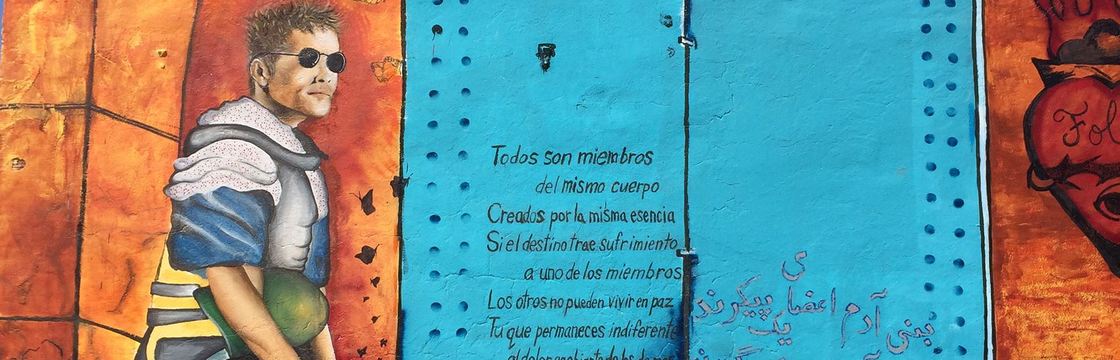 Todos son miembros
del mismo cuerpo
Creados por la misma esencia
Si el destino trae sufrimiento
a uno de los miembros
Los otros no pueden vivir en paz
Tu que permaneces indiferente
al dolor
بنی آدم اعضای یک پیکرند
Fol